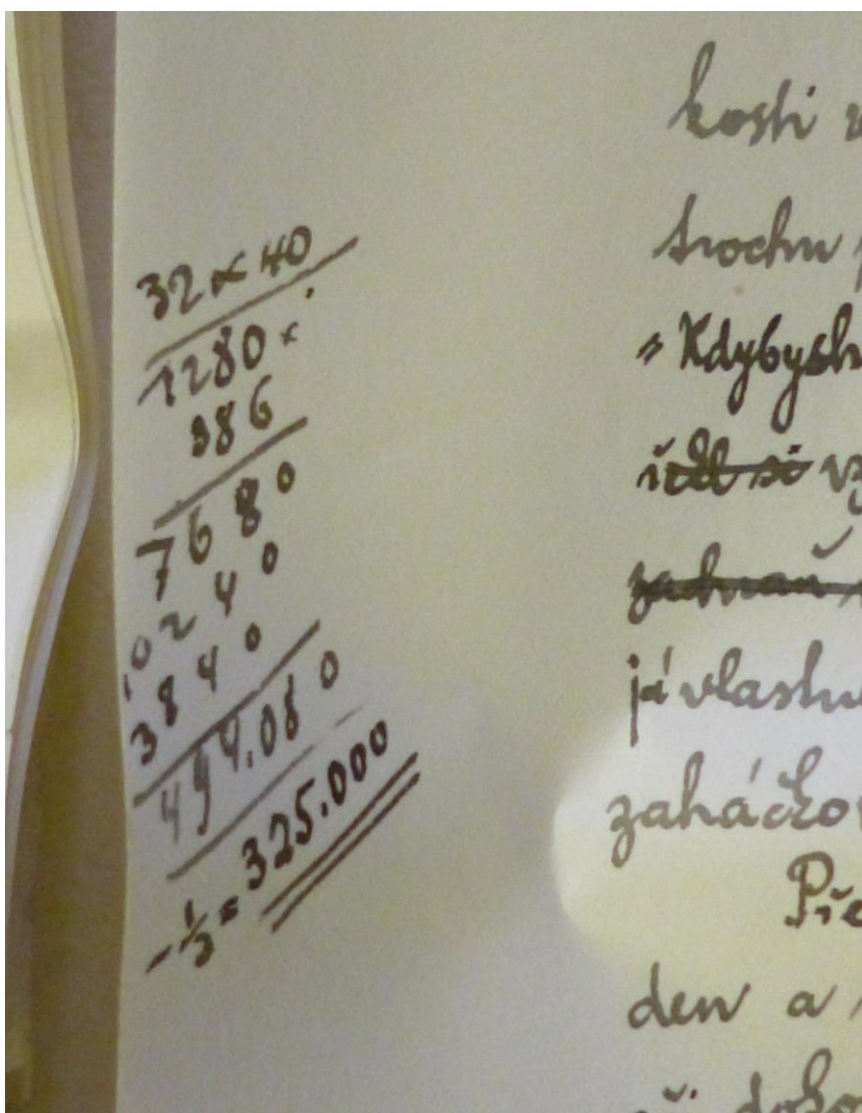 32 × 40
1280 ×
386
7680
10240
3840
494.080
- 1/3 = 325.000
kosti
trochu
„Kdybych
já vlastn
zaháčko
Pře
den a